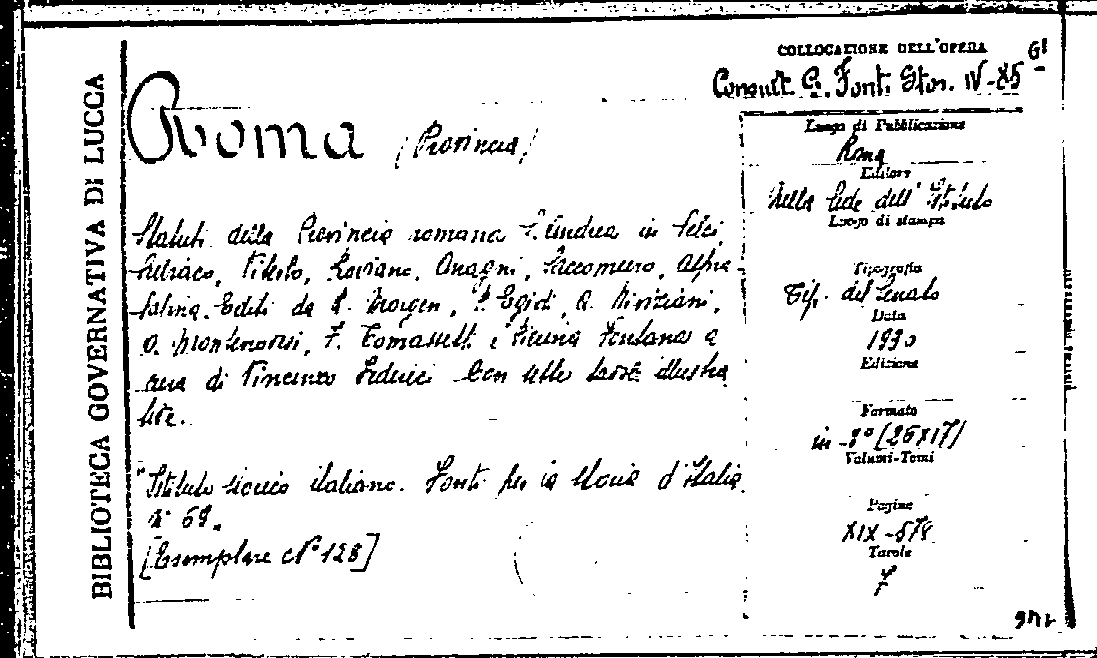 BIBLIOTECA GOVERNATIVA DI LUCCA
COLLOCAZIONE DELL'OPERA
Consult. G. Fonti Stor. IV-85
Roma (Provincia)
Statuti della Provincia romana S. Andrea in Selci
Subiaco, Viterbo, Roviano, Anagni, Saccomuro, Alfie
Edited da R. Morghen, P. Egidi, A. Diviziani,
O. Montenovesi, F. Tomassetti e Fontana a
cura di Vincenzo Federici Con sette tavole illustra
tive.
"Istituto storico italiano. Fonti per la Storia d'Italia
N° 69.
[Esemplare N° 128]
Luogo di Pubblicazione
Roma
Editore
Nella Sede dell'Istituto
Luogo di stampa
Tipografia
Tip. del Senato
Data
1930
Edizione
Formato
in-8° (25x17)
Volumi-Tomi
Pagine
XIX-578
Tavole
7